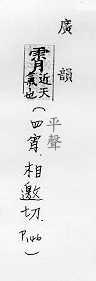 廣韻
霄 近天氣也 (平聲 四宵. 相邀切. P.146)